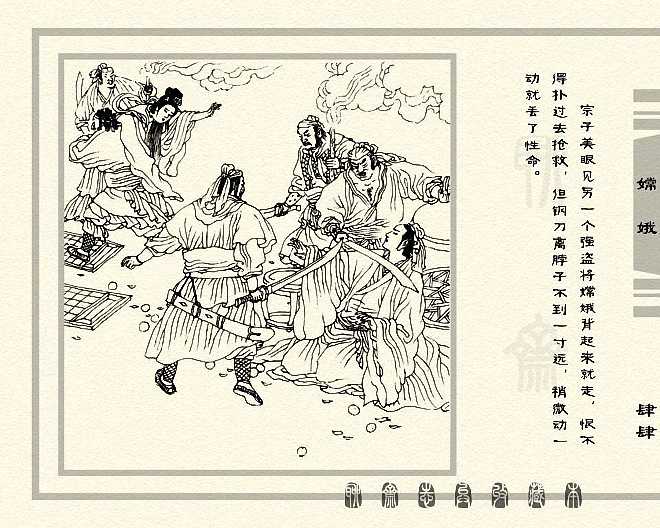 宗子美眼见另一个强盗将嫦娥背起来就走，恨不
得扑过去抢救，但钢刀离脖子不到一寸远，稍微动一
动就丢了性命。
嫦娥
肆肆